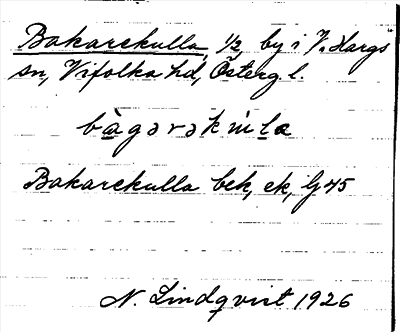 Bakarekulla, 1/2, by i V. Hargs
sn, Vifolka hd, Österg. l.
bàgərəkùla
Bakarekulla bek, ek, G45
N. Lindqvist 1926